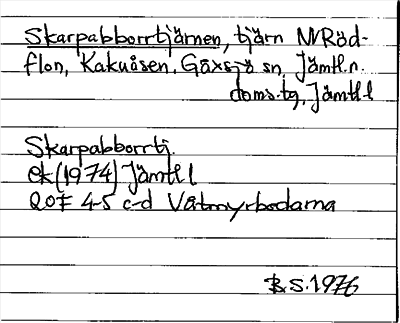 Skarpabborrtjärnen, tjärn N/Röd-
flon, Kakuåsen, Gåxsjö sn, Jämtl.n.
doms.tg, Jämtl.l
Skarpabborrtj.
ek (1974) Jämtl l
20F 4-5 c-d Våtmyrbodarna
B.S. 1976